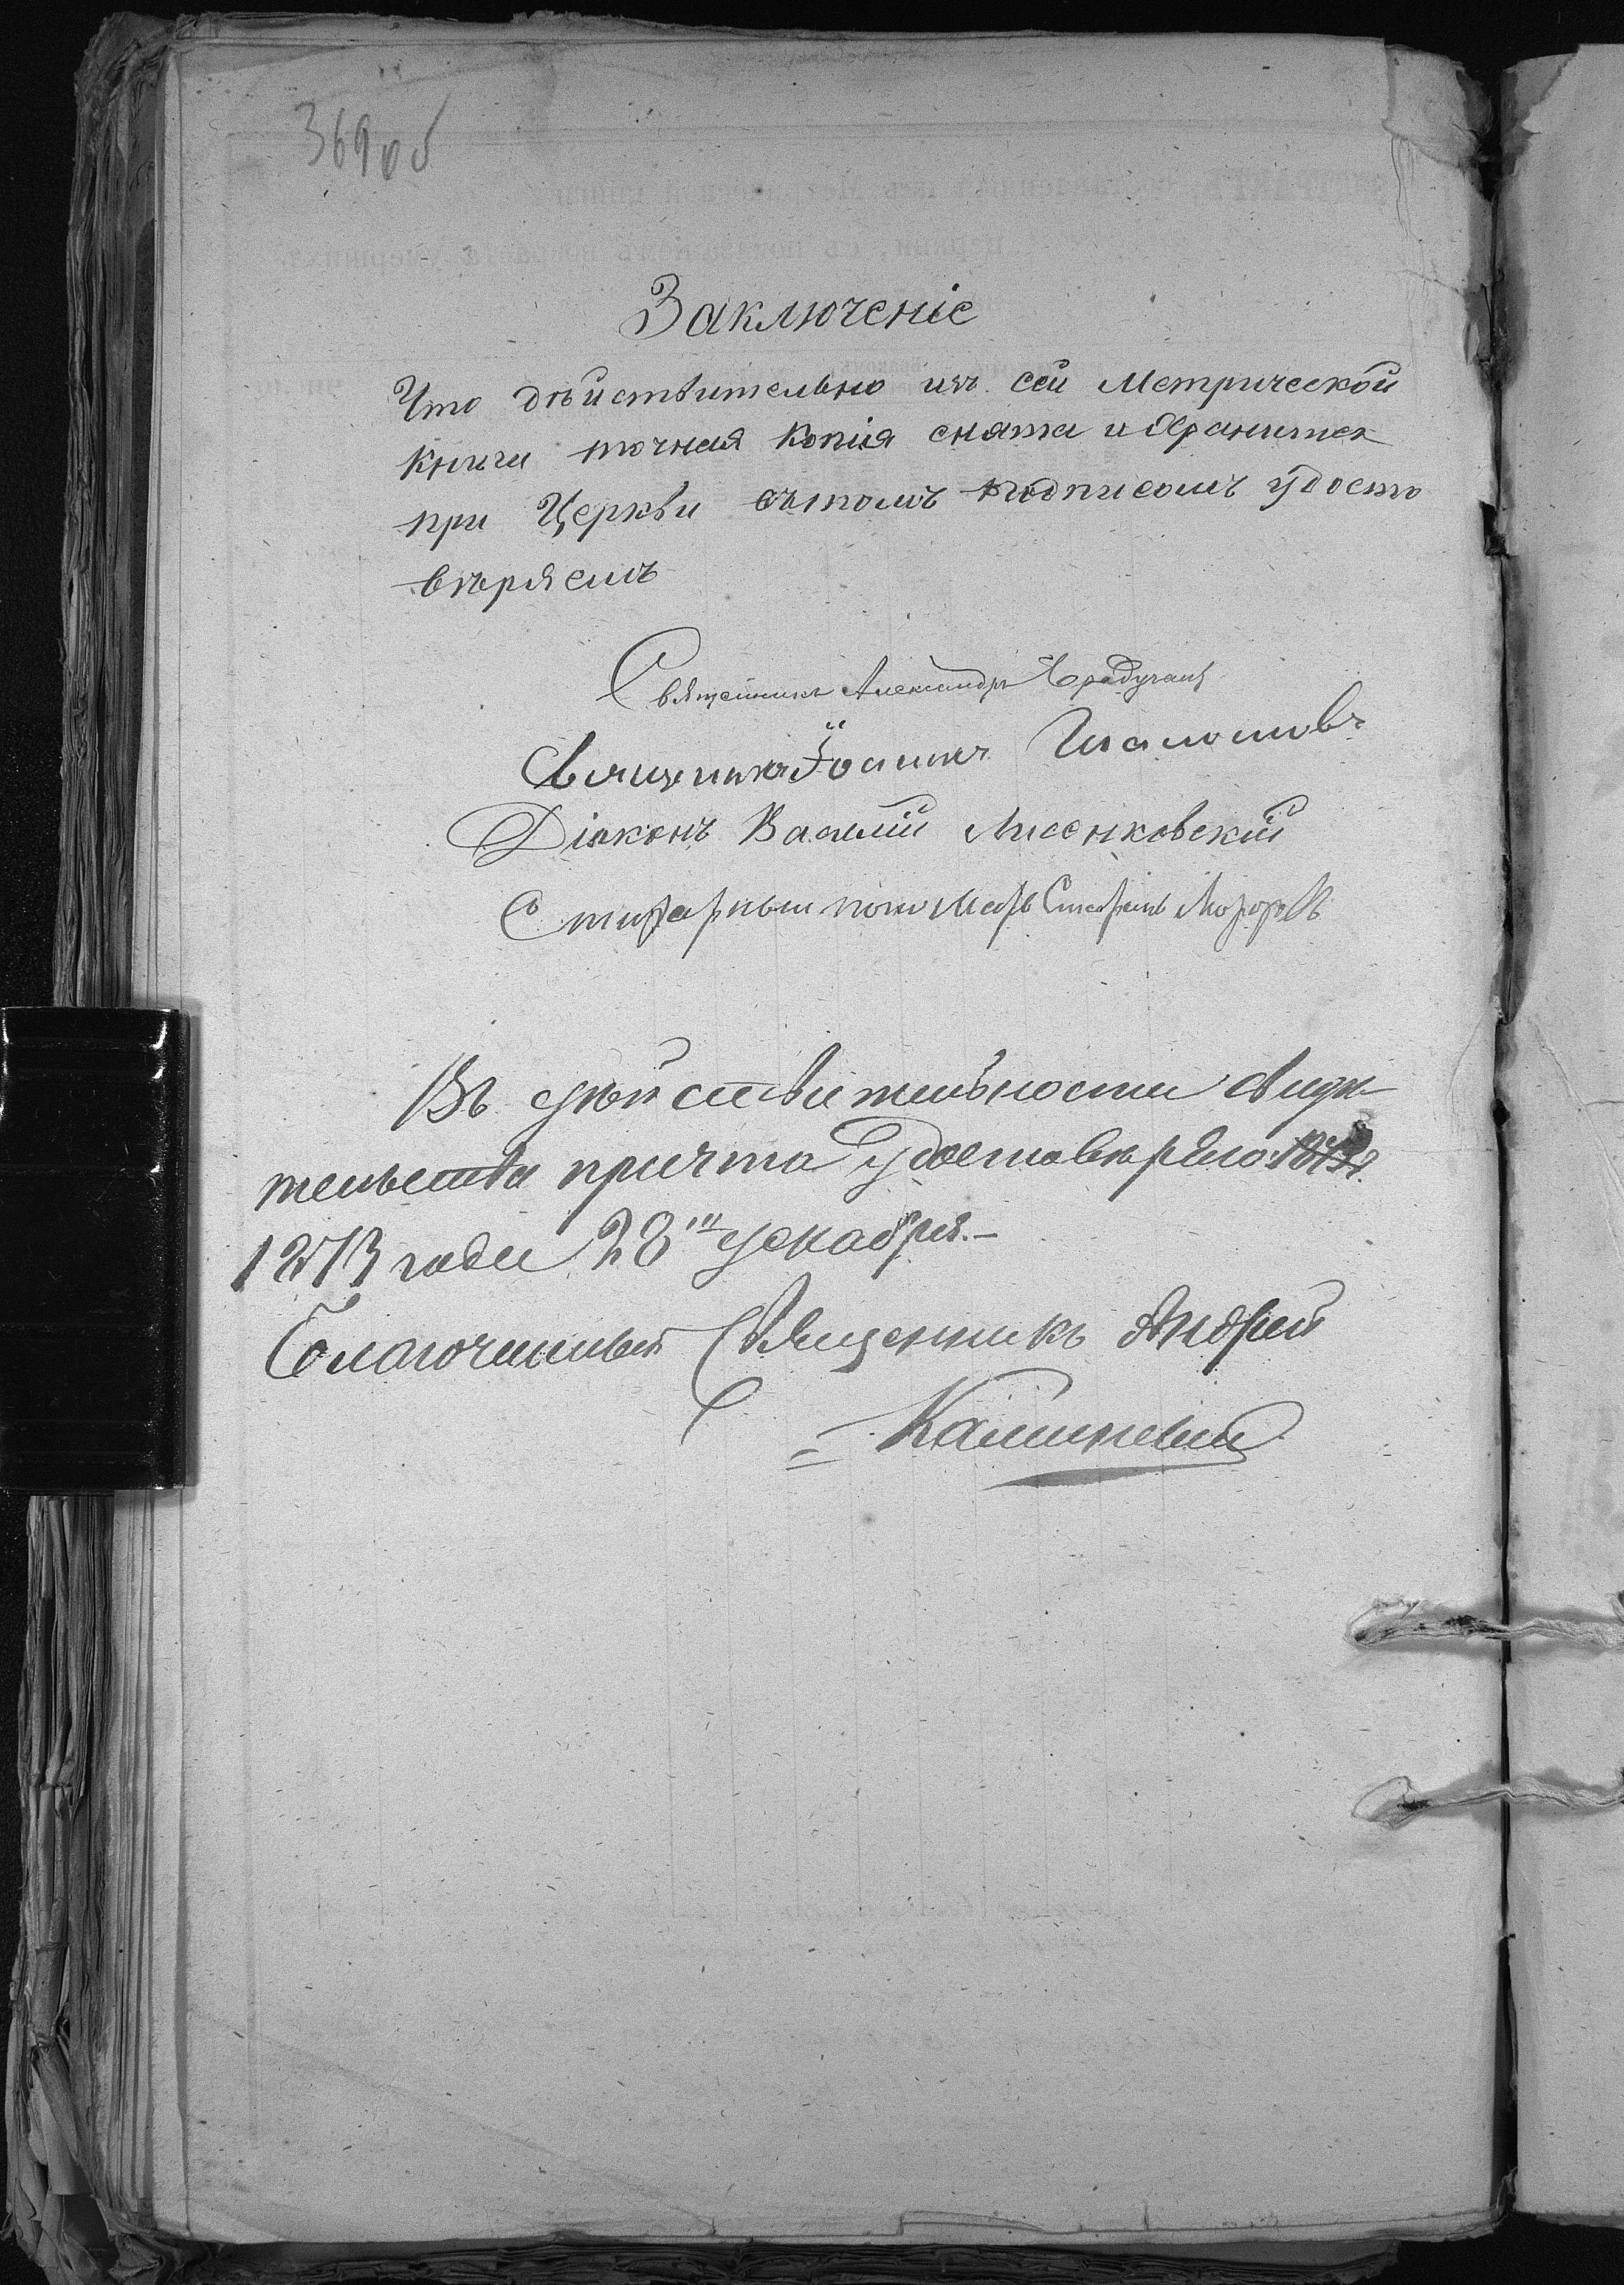 369 об
Заключеніе
Что дѣйствительно изъ сей Метрической
книги точная копія снята и хранится
при Церкви въ томъ подписомъ удосто
вѣряемъ
Священникъ Александръ
Священникъ Іоаннъ
Діяконъ Василій Лисенковскій
Стихарный пономарь
Въ дѣйствительности свидѣ
тельства причта удостовѣряю
1873 года 28 декабря.–
Благочинный Священникъ Андрей